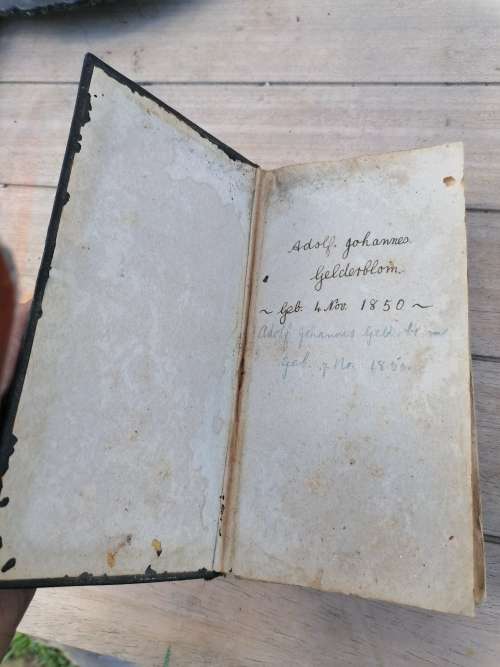 Adolf. Johannes.
Gelderblom.
~ Geb. 4 Nov. 1850 ~
Adolf Johannes
Geb. No. 1850